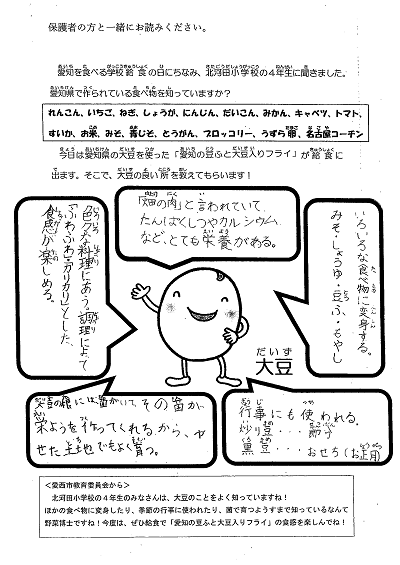 保護者の方と一緒にお読みください。
愛知を食べる学校給食の日にちなみ、北河田小学校の4年生に聞きました。
愛知県で作られている食べ物を知っていますか?
れんこん、いちご、ねぎ、しょうが、にんじん、だいこん、みかん、キャベツ、トマト、
すいか、お米、みそ、青じそ、とうがん、ブロッコリー、うずら卵、名古屋コーチン
今日は愛知県の大豆を使った「愛知の豆ふと大豆入りフライ」が給食に
出ます。そこで、大豆の良い所を教えてもらいます!
いろいろな食べ物に変身する。
みそ・しょうゆ・豆ふ・もやし
「畑の肉」と言われていて
たんぱくしつやカルシウム
など、とても栄養がある。
色々な料理にあう。調理によって
「ふわふわ」「カリカリ」とした、
食感が楽しめる。
大豆
大豆の根には菌がいて、その菌が
栄ようを作ってくれるから、や
せた土地でもよく育つ。
行事にも使われる。
炒り豆・・・節分
黒豆・・・おせち(お正月)
<愛西市教育委員会から>
北河田小学校の4年生のみなさんは、大豆のことをよく知っていますね!
ほかの食べ物に変身したり、季節の行事に使われたり、菌で育つようすまで知っているなんて
野菜博士ですね!今度は、ぜひ給食で「愛知の豆ふと大豆入りフライ」の食感を楽しんでね!